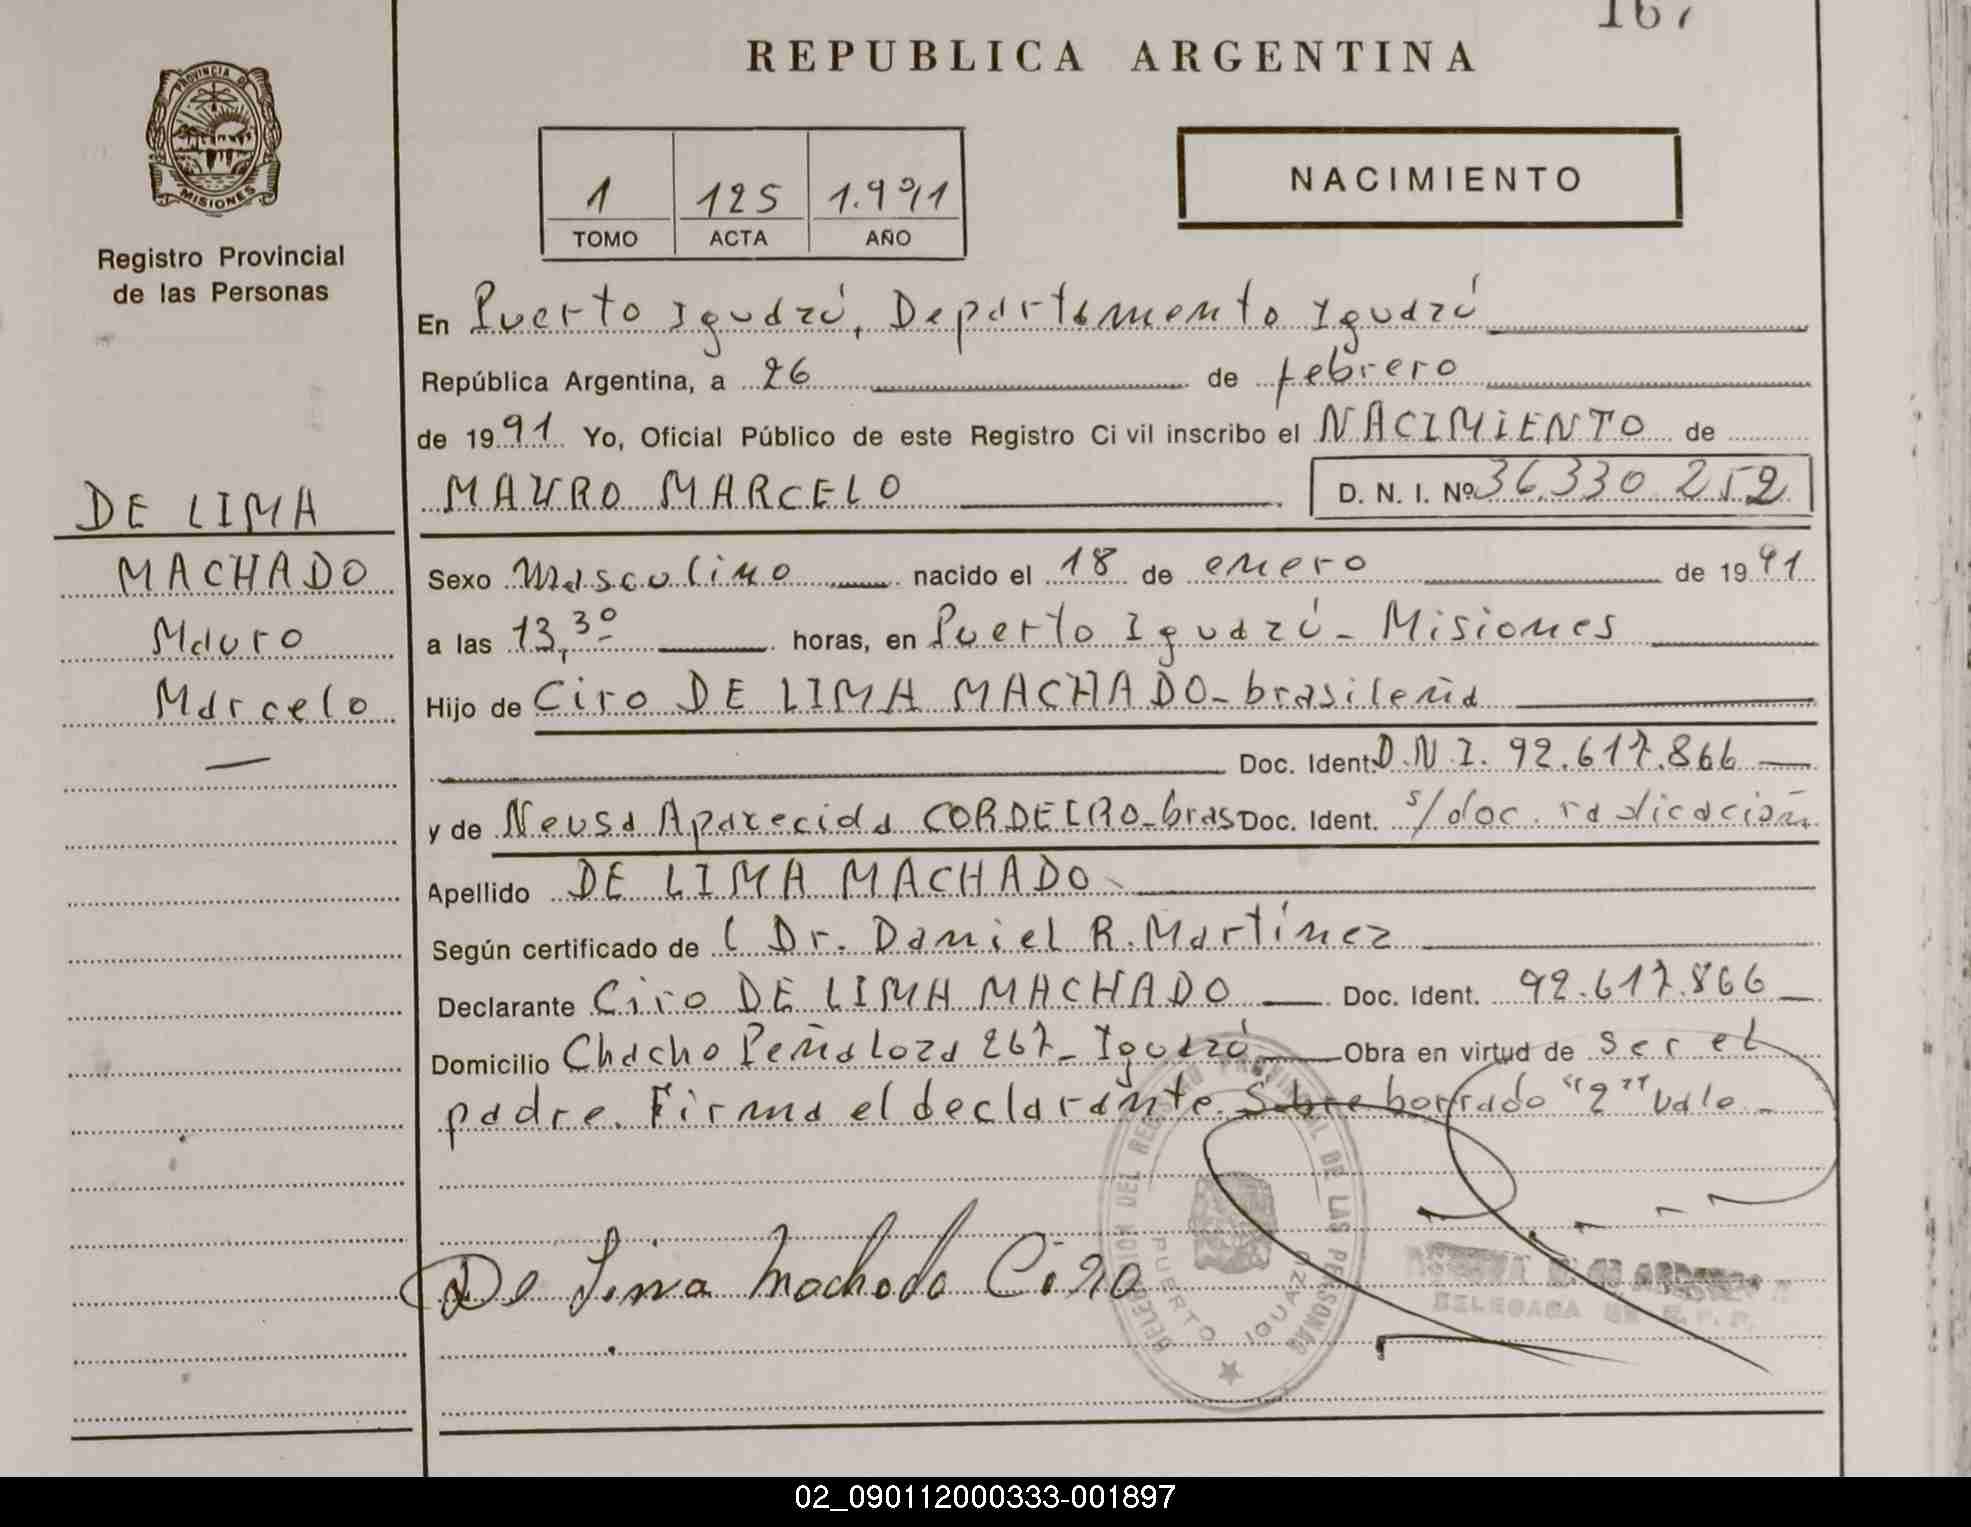 167
REPUBLICA ARGENTINA
PROVINCIA DE
MISIONES
Registro Provincial
de las Personas
1 125 1.991
TOMO ACTA AÑO
NACIMIENTO
En Puerto Iguazú, Departamento Iguazú
República Argentina, a 26 de febrero
de 1991 Yo, Oficial Público de este Registro Civil inscribo el NACIMIENTO de
MAURO MARCELO D. N. I. Nº 36.330.252
DE LIMA
MACHADO
Mauro
Marcelo
Sexo Masculino nacido el 18 de enero de 1991
a las 13,30 horas, en Puerto Iguazú - Misiones
Hijo de Ciro DE LIMA MACHADO - brasileña
Doc. Ident. D.N.I. 92.617.866
y de Neusa Aparecida CORDEIRO - bras Doc. Ident. s/doc. radicación
Apellido DE LIMA MACHADO
Según certificado de l Dr. Daniel R. Martínez
Declarante Ciro DE LIMA MACHADO Doc. Ident. 92.617.866
Domicilio Chacho Peñaloza 267 - Iguazú Obra en virtud de ser el
padre. Firma el declarante. Sobre borrado "2" vale -
De Lima Machado Ciro
DELEGACION DEL REGISTRO PROVINCIAL DE LAS PERSONAS
PUERTO IGUAZU
DELEGADA DE R. P. P.
02_090112000333-001897